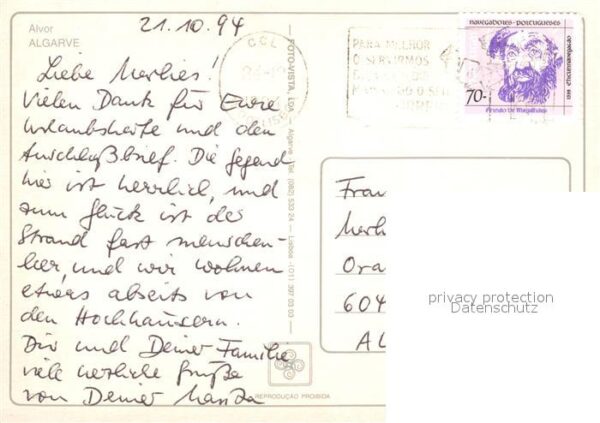 Alvor
ALGARVE
21.10.94
Liebe Marlies!
Vielen Dank für Eure
Urlaubskarte und den
Anschlußbrief. Die Gegend
hier ist herrlich, und
zum Glück ist der
Strand fast menschen-
leer, und wir wohnen
etwas abseits von
den Hochhäusern.
Dir und Deiner Familie
viele herzliche Grüße
von Deiner
REPRODUÇÃO PROIBIDA
FOTO-VISTA, LDA. Algarve Tel. (082) 533 24 — Lisboa
CCL
PARA MELHOR
O SERVIRMOS
NAVEGADORES PORTUGUESES
70-
Fernão de Magalhães
Frau
Marl
Ora
604
AL
privacy protection
Datenschutz